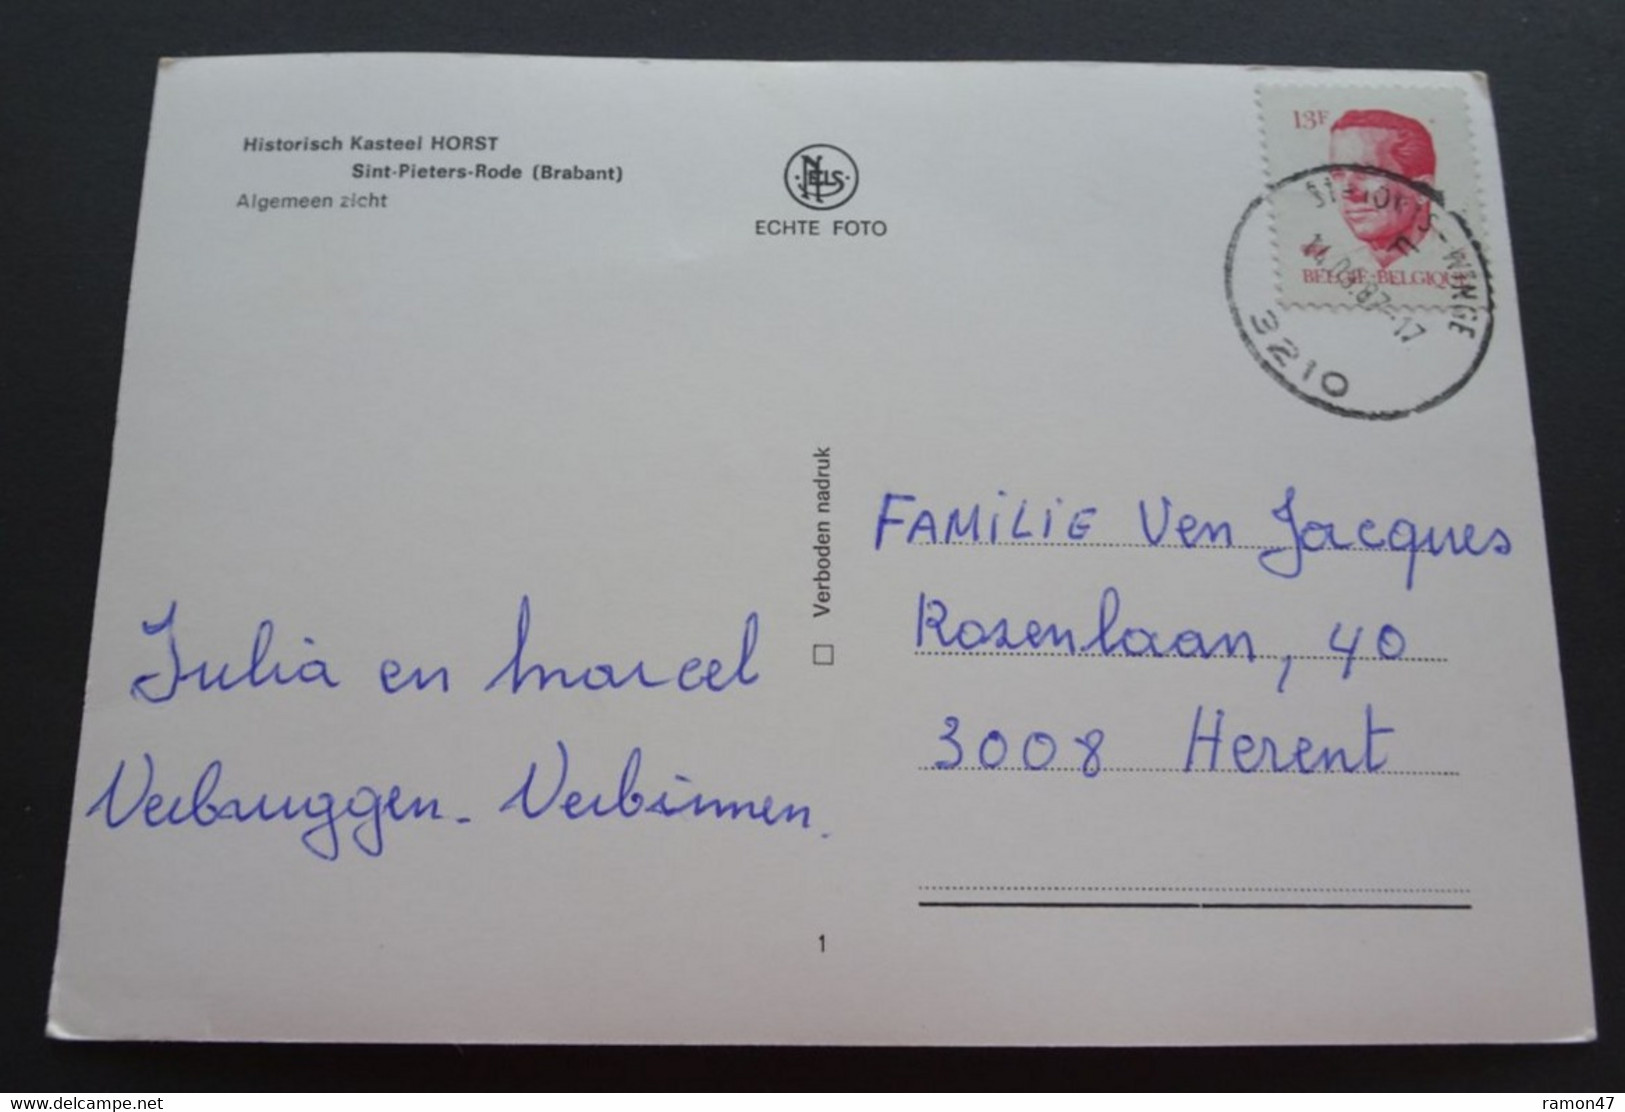 Historisch Kasteel HORST
Sint-Pieters-Rode (Brabant)
Algemeen zicht
NELS
ECHTE FOTO
13F
BELGIË-BELGIQUE
ST-JORIS-WINGE
87-17
3210
Verboden nadruk
FAMiLiE Ven Jacques
Rozenlaan, 40
3008 Herent
Julia en Marcel
Verbruggen - Verbinnen.
1
www.delcampe.net
ramon47